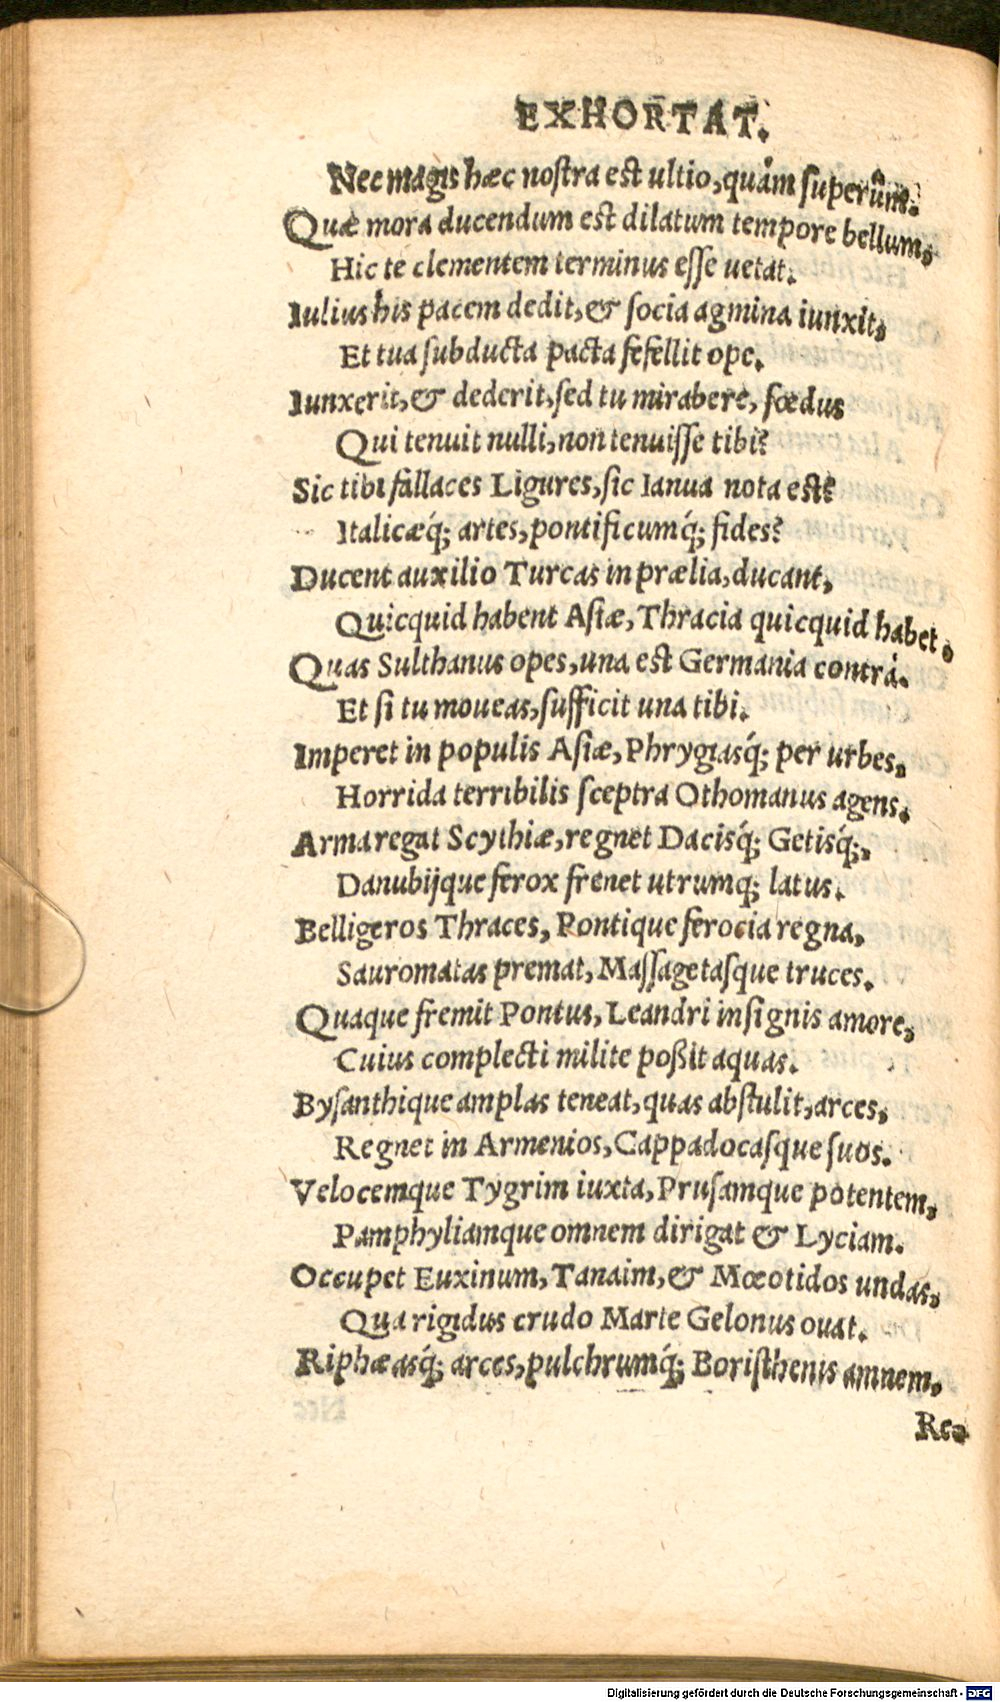 EXHORTAT.
Nec magis hæc nostra est ultio, quàm superûm.
Quæ mora ducendum est dilatum tempore bellum,
Hic te clementem terminus esse uetat.
Iulius his pacem dedit, & socia agmina iunxit,
Et tua subducta pacta fefellit ope.
Iunxerit, & dederit, sed tu mirabere, fœdus
Qui tenuit nulli, non tenuisse tibi?
Sic tibi fallaces Ligures, sic Ianua nota est?
Italicæq́; artes, pontificumq́; fides?
Ducent auxilio Turcas in prælia, ducant,
Quicquid habent Asiæ, Thracia quicquid habet,
Quas Sulthanus opes, una est Germania contrà.
Et si tu moueas, sufficit una tibi.
Imperet in populis Asiæ, Phrygiasq́; per urbes,
Horrida terribilis sceptra Othomanus agens,
Arma regat Scythiæ, regnet Dacisq́; Getisq́;,
Danubijque ferox frenet utrumq; latus.
Belligeros Thraces, Pontique ferocia regna,
Sauromatas premat, Massagetasque truces.
Quaque fremit Pontus, Leandri insignis amore,
Cuius complecti milite poßit aquas.
Bysanthique amplas teneat, quas abstulit, arces,
Regnet in Armenios, Cappadocasque suos.
Velocemque Tygrim iuxta, Prusamque potentem,
Pamphyliamque omnem dirigat & Lyciam.
Occupet Euxinum, Tanaim, & Mœotidos undas,
Qua rigidus crudo Marte Gelonus ouat.
Riphæasq́; arces, pulchrumq́; Boristhenis amnem,
Re-
Digitalisierung gefördert durch die Deutsche Forschungsgemeinschaft - DFG